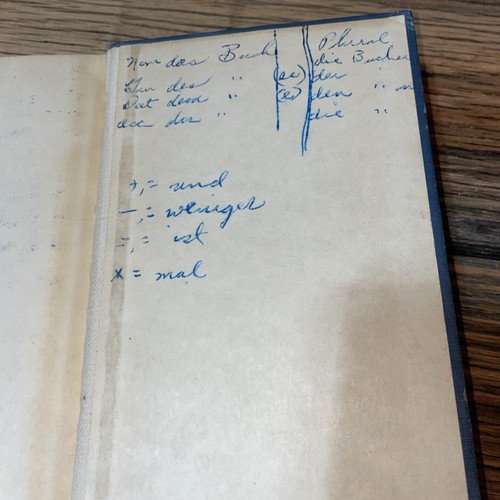 Nom das Buch Plural die Bucher
Gen des " (es) der "
Dat dem " (e) den " n
acc das " die "
+,= und
-,= weniger
=,= ist
x = mal